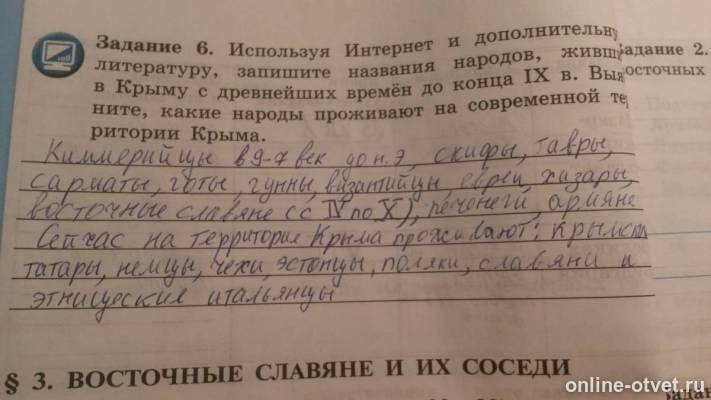 Задание 6. Используя Интернет и дополнительну
литературу, запишите названия народов, живши
в Крыму с древнейших времён до конца IX в. Выя
ните, какие народы проживают на современной те
ритории Крыма.
Киммерийцы в 9-7 век до н.э, скифы, тавры,
сарматы, готы, гунны, византийцы, евреи, хазары,
восточные славяне (с IV по X), печенеги, армяне
Сейчас на территория Крыма проживают: крымск
татары, немцы, чехи, эстонцы, поляки, славяни и
этнические итальянцы
§ 3. ВОСТОЧНЫЕ СЛАВЯНЕ И ИХ СОСЕДИ
адание 2.
осточных
online-otvet.ru